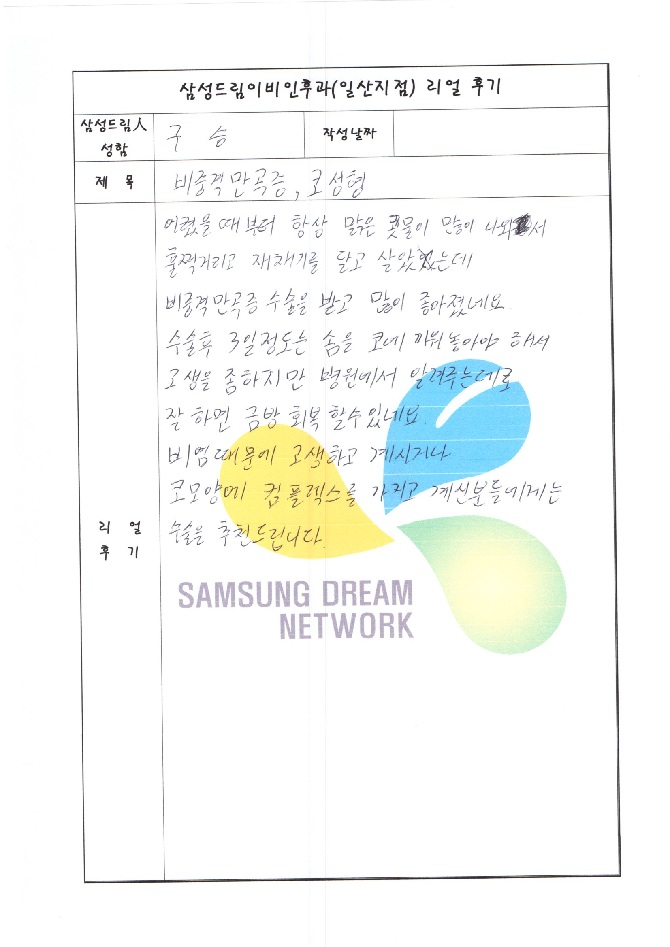 삼성드림이비인후과(일산지점) 리얼 후기
삼성드림人
성함
구 승
작성날짜
제 목
비중격만곡증, 코성형
어렸을때부터 항상 맑은 콧물이 많이 나와서
훌쩍거리고 재채기를 달고 살았었는데
비중격만곡증 수술을 받고 많이 좋아졌네요.
수술후 3일정도는 솜을 코에 끼워놓아야 해서
고생을 좀하지만 병원에서 알려주는데로
잘 하면 금방 회복 할수있네요.
비염때문에 고생하고 계시거나
코모양에 컴플렉스를 가지고 계신분들에게는
수술을 추천드립니다.
리 얼
후 기
SAMSUNG DREAM
NETWORK